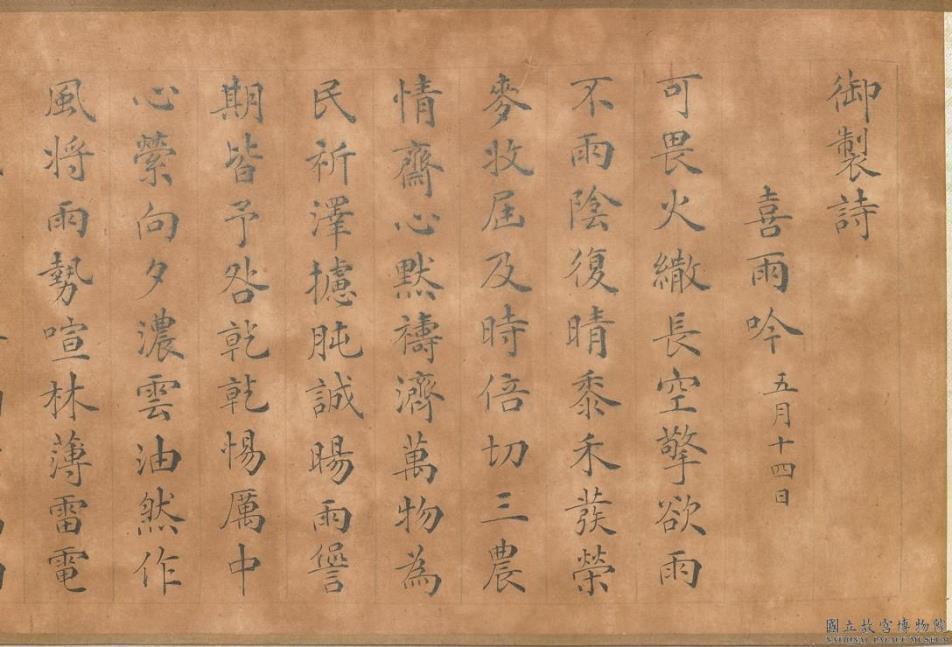 御製詩
喜雨吟 五月十四日
可畏火繖長空擎欲雨
不雨陰復晴黍禾發榮
麥收屆及時倍切三農
情齋心默禱濟萬物為
民祈澤攄肫誠暘雨愆
期皆予咎乾乾惕厲中
心縈向夕濃雲油然作
風將雨勢喧林薄雷電
國立故宮博物院
NATIONAL PALACE MUSEUM